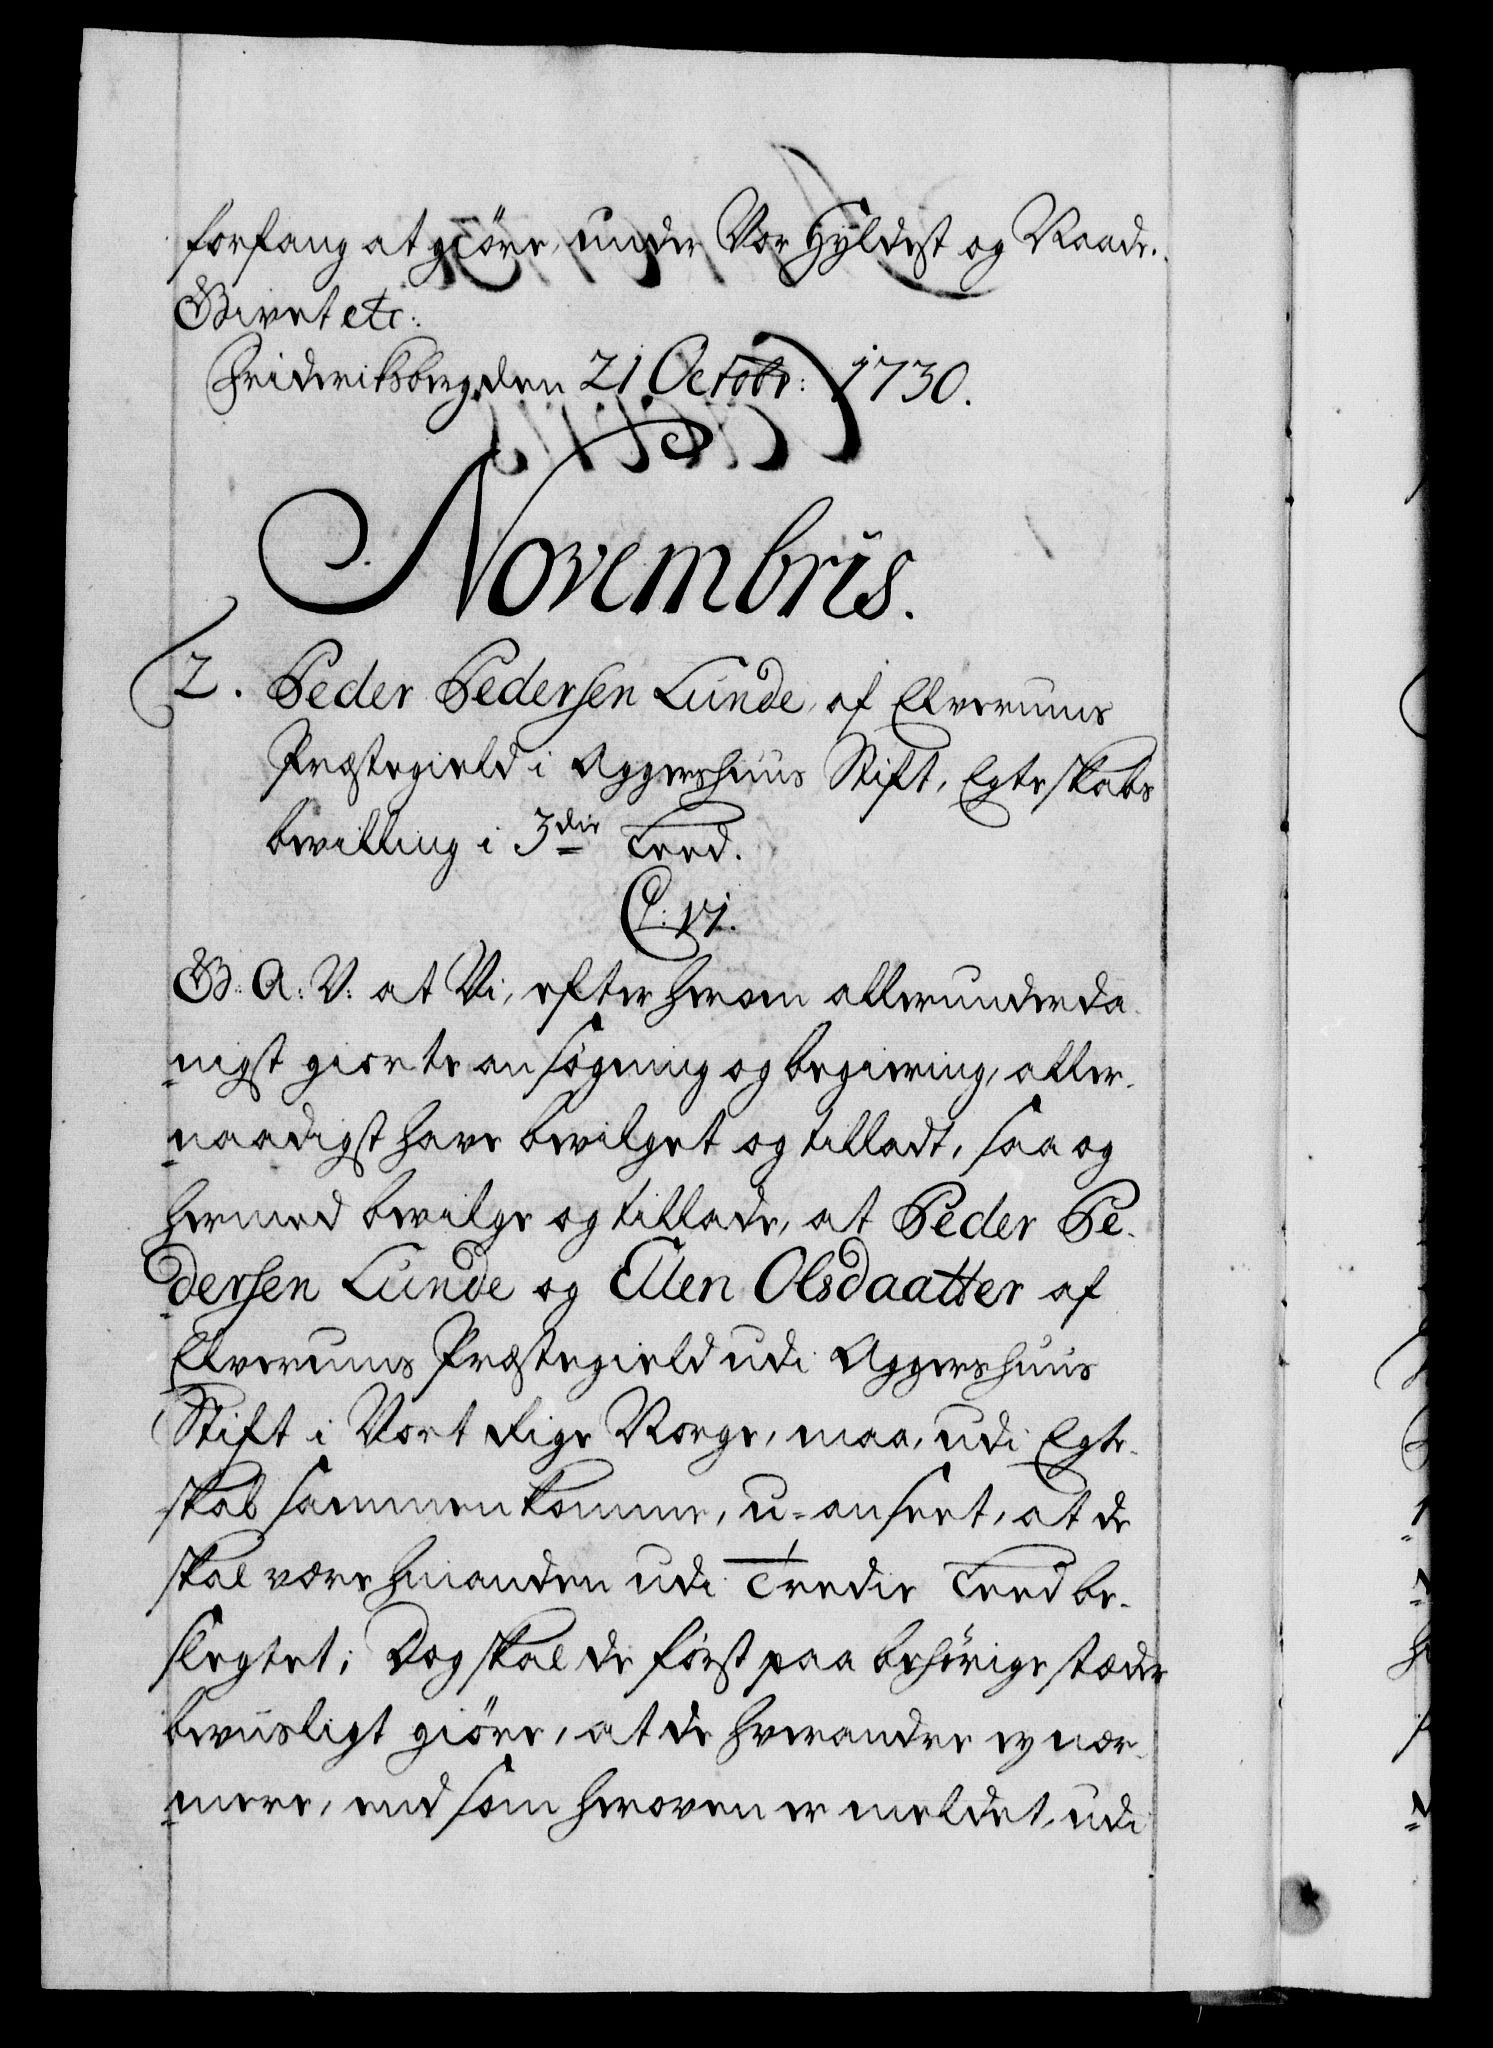 forfang at giöre, under Vor Hyldest og Naade.
Givet etc:
Frideriksberg, den 21 Octobr: 1730.
Novembris.
2. Peder Pedersen Lunde, af Elverums
Præstegield i Aggershuus Stift, Egteskabs
bevilling i 3die Leed.
C: VI.
G: A: V: at Vi, efter herom allerunderda-
nigst giorte ansøgning og begiering, aller-
naadigst have bevilget og tilladt, saa og
hermed bevilge og tillade, at Peder Pe-
dersen Lunde og Ellen Olsdaatter af
Elverums Præstegield udi Aggershuus
Stift i Vort Rige Norge, maa, udi Egte-
skab sammenkomme, u-anseet, at de
skal være hinanden udi Tredie Leed be-
slegtet; Dog skal de först paa behörige stæder
beviisligt giöre, at de hverandre ey nær-
mere, end som heroven er meldet, udi